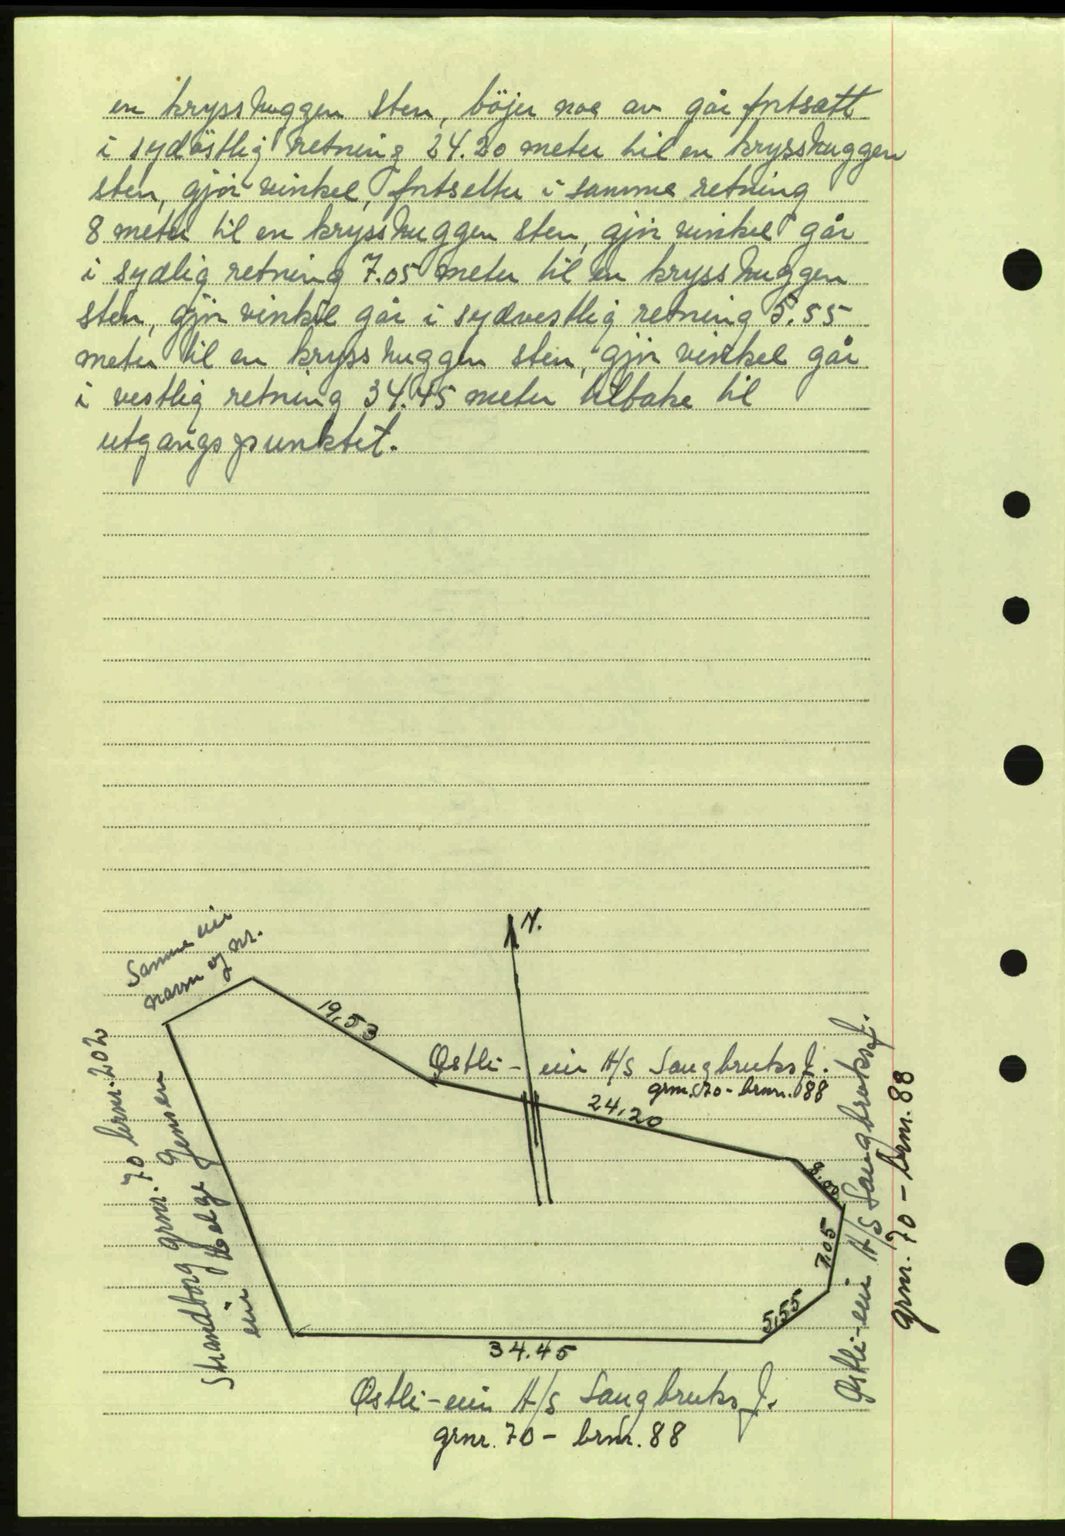 en krysshuggen sten, böjer noe av går fortsatt
i sydöstlig retning 24.20 meter til en krysshuggen
sten, gjör vinkel, fortsetter i samme retning
8 meter til en krysshuggen sten, gjör vinkel går
i sydlig retning 7.05 meter til en krysshuggen
sten, gjör vinkel går i sydvestlig retning 5.55
meter til en krysshuggen sten, gjör vinkel går
i vestlig retning 34.45 meter tilbake til
utgangspunktet.
N.
Samme eier
navn og nr.
19,53
Østli - eier A/S Saugbruksf.
grnr. 70 - brnr. 88
24,20
8.00
7.05
5,55
34.45
Strandborg grnr. 70 brnr. 202
eier Helge Jensen
Østli - eier A/S Saugbruksf.
grnr. 70 - brnr. 88
Østli - eier A/S Saugbruksf.
grnr. 70 - brnr. 88